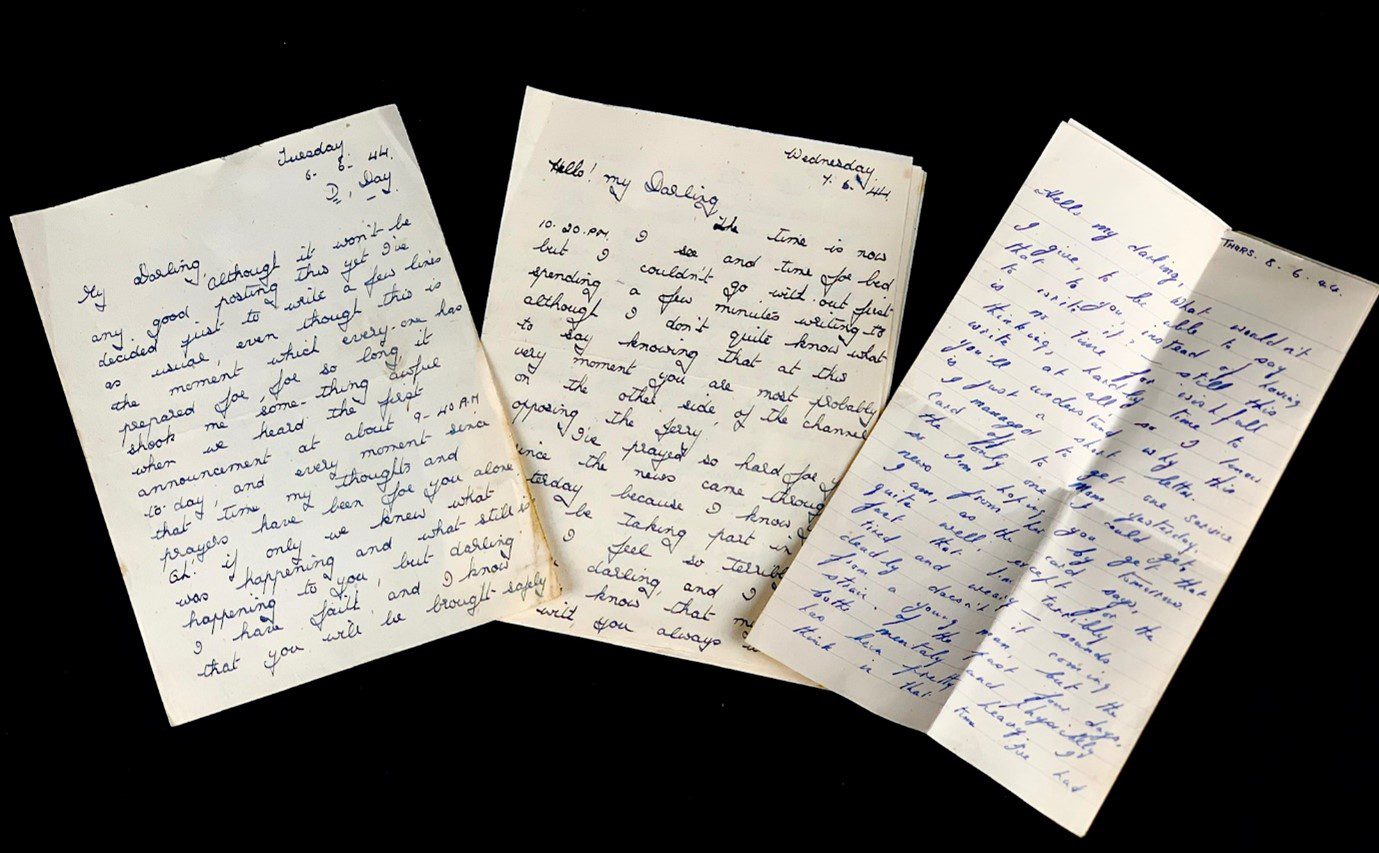 Tuesday
6. 6. 44.
D, Day.
My Darling,
although it won't be
any good posting this yet I've
decided just to write a few lines
as usual, even thought this is
the moment which every-one has
prepared for, for so long, it
shook me some-thing awful
when we heard the first
announcement at about 9-40 AM
to-day, and every moment since
that time my thoughts and
prayers have been for you alone
Gl! if only we knew what
was happening and what still is
happening to you, but darling
I have faith, and I know
that you will be brought safely
Wednesday
7. 6. 44.
Hello! my Darling,
The time is now
10.20.P.M. I see and time for bed
but I couldn't go with out first
spending a few minutes writing to
although I don't quite know what
to say knowing that at this
very moment you are most probably
on the other side, of the channel
opposing the Jerry.
I've prayed so hard for y
ince the news came throug
terday because I know
be taking part in
I feel so terribl
darling, and I
know that m
with you always
THURS. 8. 6. 44.
Hello my darling,
What wouldn't
I give, to be able to say
that to you, instead of having
to write it? – still this
is no time for wishfull
thinking, hardly time to
write at all, so I know
you'll understand why this
is just a short letter.
I managed to get one Service
Card off to Mam yesterday.
the only one I could get,
so I'm hoping you get the
news from her by tomorrow.
I am, as the card says,
quite well, except for the
fact that I'm terribly
tired and weary – sounds
deadly doesn't it coming
from a young man, but the
strain of the past four days,
both mentaly and physically
has been pretty heavy. I
think in that time I've had